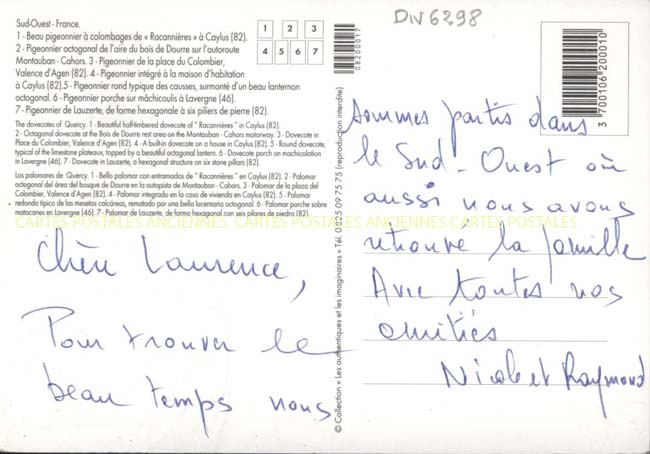 Sud-Ouest - France.
1 - Beau pigeonnier à colombages de « Racannières » à Caylus (82).
2 - Pigeonnier octogonal de l'aire du bois de Dourre sur l'autoroute
Montauban - Cahors. 3 - Pigeonnier de la place du Colombier,
Valence d'Agen (82). 4 - Pigeonnier intégré à la maison d'habitation
à Caylus (82). 5 - Pigeonnier rond typique des causses, surmonté d'un beau lanternon
octogonal. 6 - Pigeonnier porche sur mâchicoulis à Lavergne (46).
7 - Pigeonnier de Lauzerte, de forme hexagonale à six piliers de pierre (82).
The dovecotes of Quercy. 1 - Beautiful half-timbered dovecote of " Racannières " in Caylus (82).
2 - Octogonal dovecote at the Bois de Dourre rest area on the Montauban - Cahors motorway. 3 - Dovecote in
Place du Colombier, Valence d'Agen (82). 4 - A built-in dovecote on a house in Caylus (82). 5 - Round dovecote,
typical of the limestone plateaus, topped by a beautiful octogonal lantern. 6 - Dovecote porch on machicolation
in Lavergne (46). 7 - Dovecote in Lauzerte, a hexagonal structure on six stone pillars (82).
Los palomares de Quercy. 1 - Bello palomar con entramados de " Racannières " en Caylus (82). 2 - Palomar
octogonal del área del bosque de Dourre en la autopista de Montauban - Cahors. 3 - Palomar de la plaza del
Colombier, Valence d'Agen (82). 4 - Palomar integrado en la casa de vivienda en Caylus (82). 5 - Palomar
redondo típico de las mesetas calcáreas, rematado por una bella lucernaria octogonal. 6 - Palomar porche sobre
matacanes en Lavergne (46). 7 - Palomar de Lauzerte, de forma hexagonal con seis pilares de piedra (82).
1 2 3
4 5 6 7
08200017
© Collection « Les authentiques et les imaginaires » Tél. 0 525 09 75 75 (reproduction interdite)
DIV6298
3 700106 200010
CARTES POSTALES ANCIENNES CARTES POSTALES ANCIENNES CARTES POSTALES
Chère Laurence,
Pour trouver le
beau temps nous
sommes partis dans
le Sud-Ouest où
aussi nous avons
retrouvé la famille
Avec toutes nos
amitiés
Nicole et Raymond